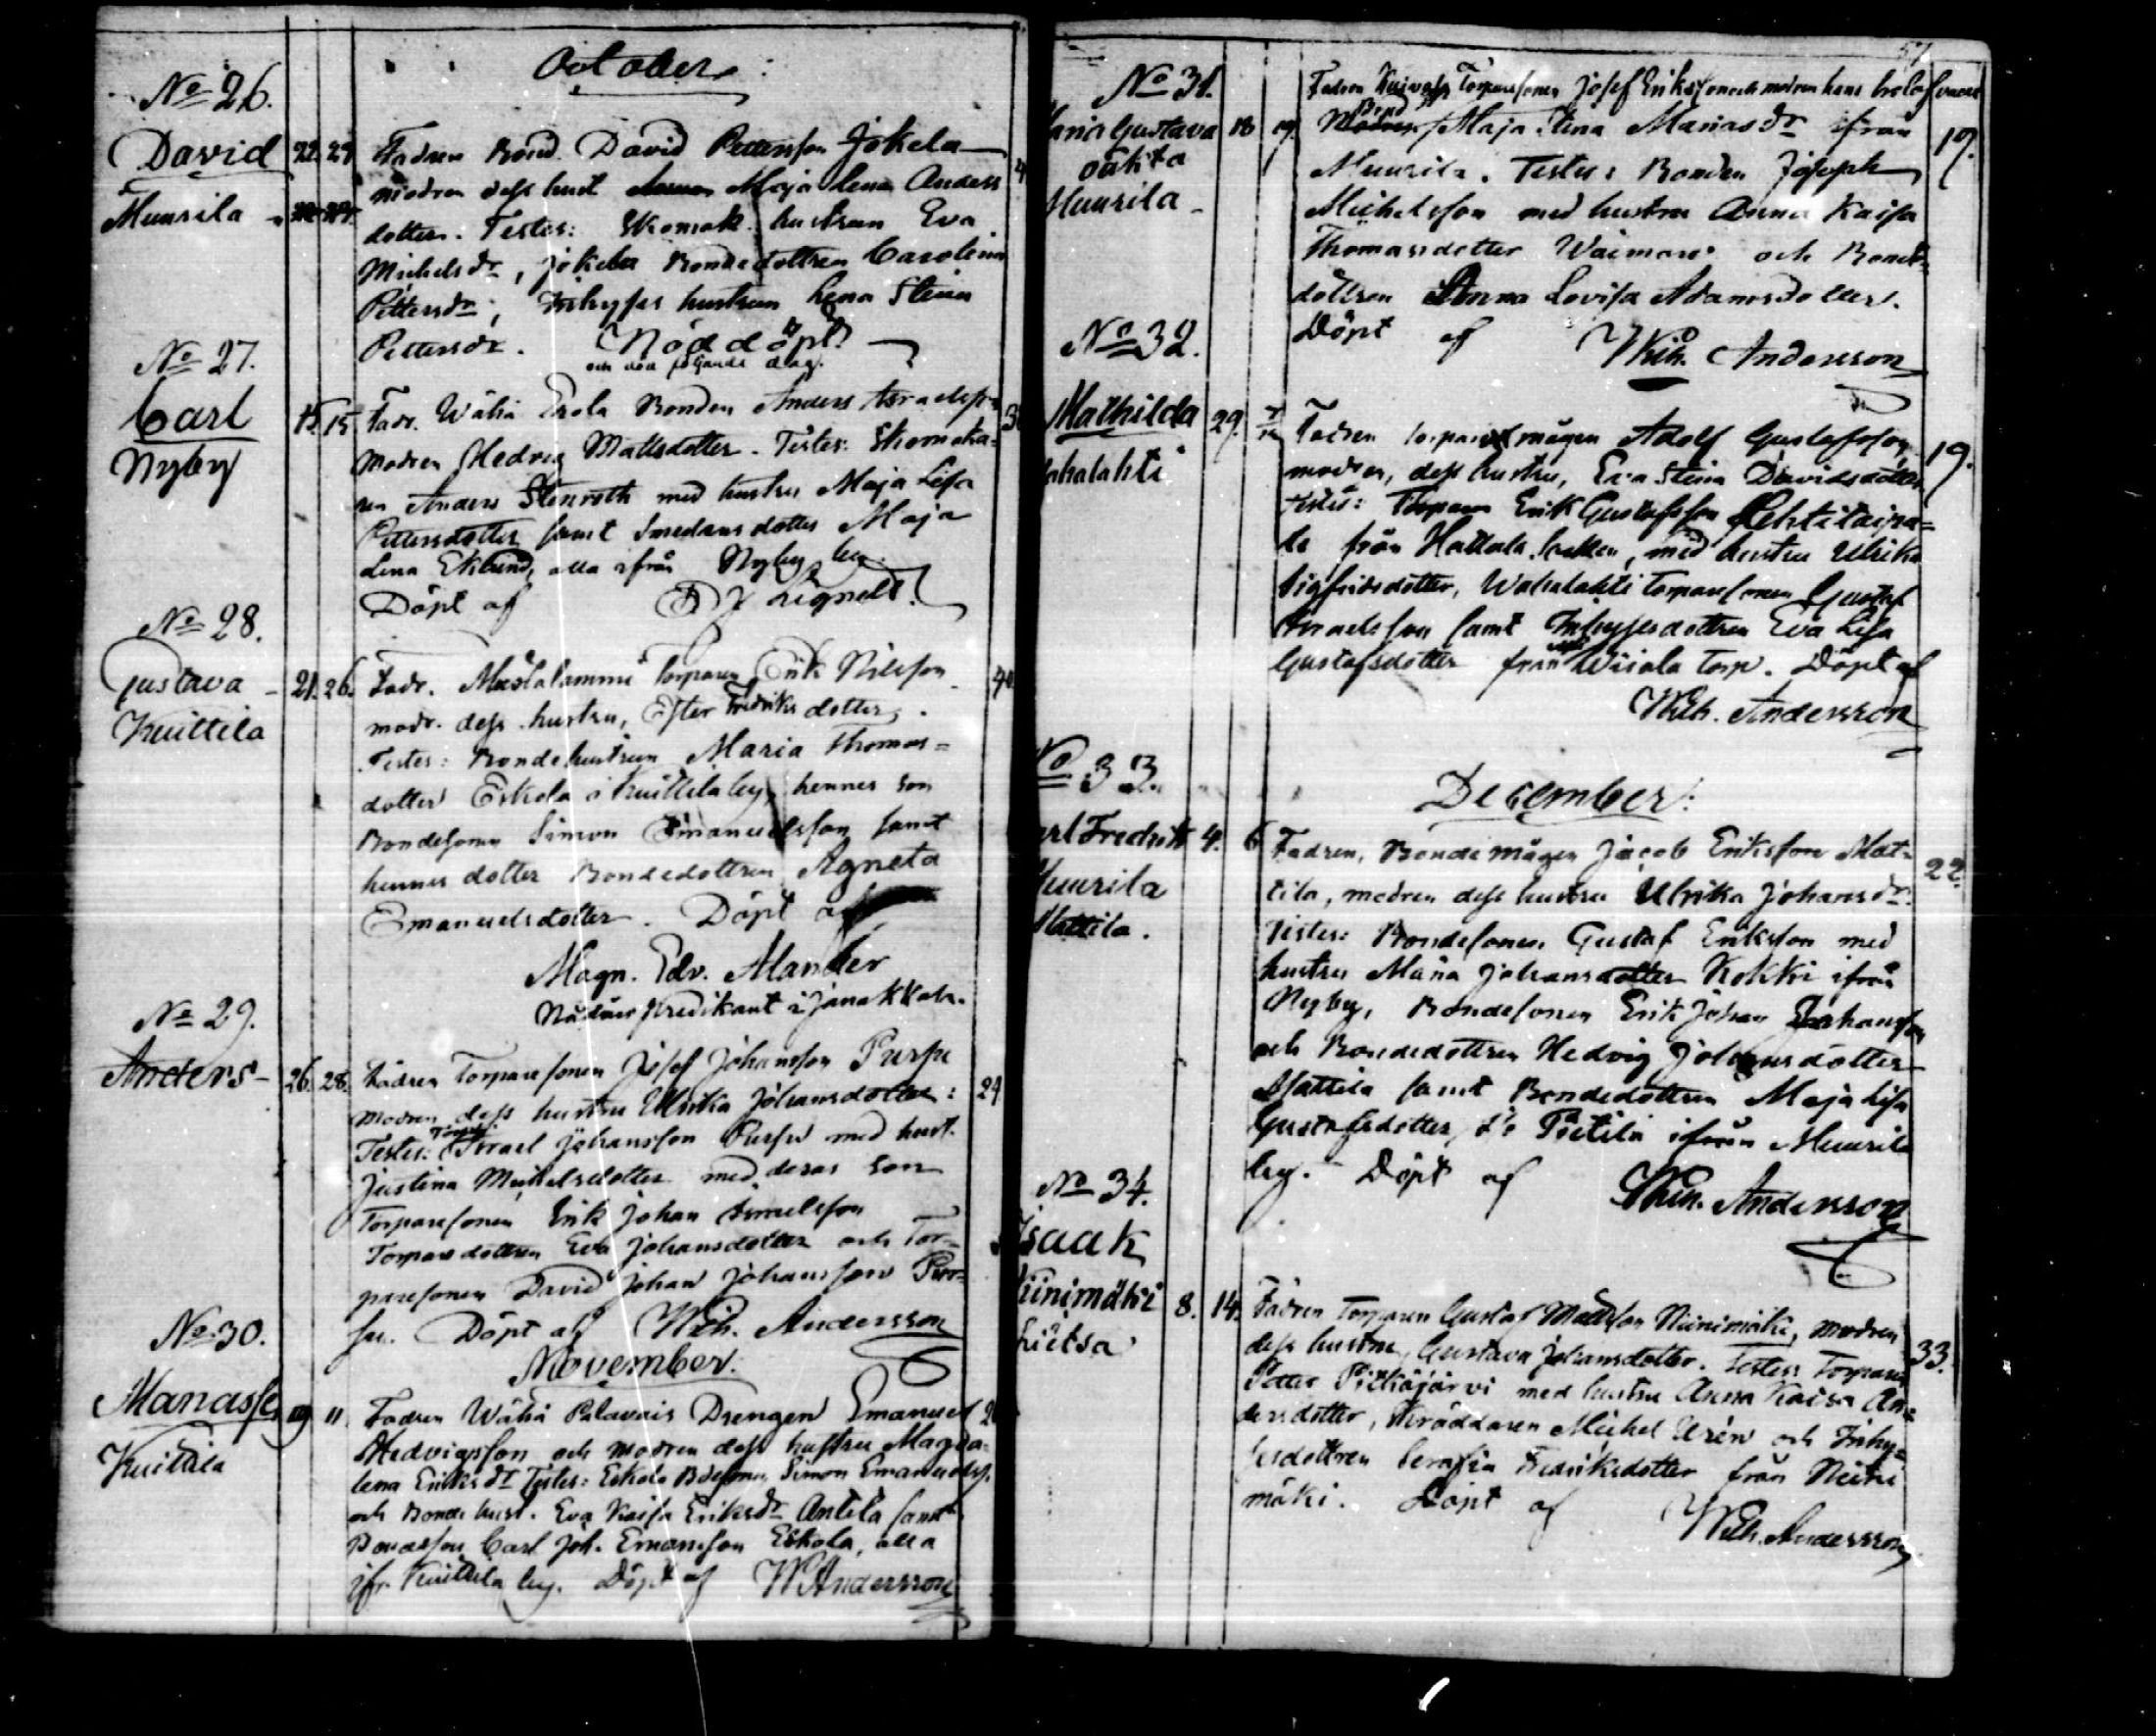 October:
No 26.
David
Muurila
22. 27
Fadren Bond. David Pettersson Jokela
modren dess hust Maja Lena Anders
dotter. Testes: Skomak. hustrun Eva
Michelsdr, Jokela Bondedottren Carolina
Pettersdr, Inhyses hustrun Lena Stina
Pettersdr. Nöddöpt
och dog följande dag.
No 27.
Carl
Nyby
15. 15
Fadr. Wähä Erola Bonden Anders Israelsson
modren Hedvig Mattsdotter. Testes: Skomaka-
ren Anders Stenroth med hustru Maja Lisa
Pettersdotter samt Smedens dotter Maja
Lena Eklund, alla ifrån Nyby by.
Döpt af Lignell.
No 28.
Gustava
Kuittila
21. 26.
Fadr. Mustalammi Torparen Erik Nilsson
40
modr. dess hustru, Ester Fredriks dotter.
Testes: Bondehustrun Maria Thomas=
dotter Eskola i Kuittila by, hennes son
Bondesonen Simon Emanuelsson samt
hennes dotter Bondedottren Agneta
Emanuelsdotter. Döpt af
Magn. Edv. Alander
Nådårs Predikant i Janakkala.
No 29.
Anders
26. 28.
Fadren Torparesonen Josef Johansson Pursu
24
modren dess hustru Ulrika Johansdotter:
Testes: Torp. Israel Johansson Pursu med hust.
Justina Michelsdotter med deras son
Torparesonen Erik Johan Israelsson
Torparedottren Eva Johansdotter och Tor=
paresonen David Johan Johansson Pur-
su. Döpt af Wilh. Andersson
November.
No. 30.
Manasse
Kuittila
10 11
Fadren Wähä Palavais Drengen Emanuel
Hedvigsson och modren dess hustru Magda=
lena Eriksdr Testes: Eskola Bdesonen Simon Emanuelss.
och Bonde hust. Eva Kaisa Eriksdr Antila samt
Bondeson Carl Joh. Emansson Eskola, alla
ifr. Kuittila by. Döpt af W Andersson
57
No 31.
Maria Gustava
oäkta
Muurila
18 19.
Fadren Torparesonen Josef Eriksson och modren hans
Bond Maja Stina Mariasdr ifrån
19.
Muurila. Testes: Bonden Joseph
Michelsson med hustru Anna Kaisa
Thomasdotter Waimaro och Bonde=
dottren Anna Lovisa Adamsdotter.
Döpt af Wilh. Andersson
No 32.
Mathilda
Wahalahti
29.
Fadren torparemågen Adolf Gustafsson
19.
modren, dess hustru, Eva Stina Davidsdotter
Testes: Torparen Erik Gustafsson Lehtitaipa=
le från Hattula Socken, med hustru Ulrika
Sigfridsdotter, Wahalahti torparesonen Gustaf
Israelsson samt Inhysesdottren Eva Lisa
Gustafsdotter från Wiiala torp. Döpt af
Wilh. Andersson
December:
No 33.
Carl Fredrik
Muurila
Mattila.
4. 6
Fadren, Bondemågen Jacob Eriksson Mat-
22.
tila, modren dess hustru Ulrika Johansdr.
Testes: Bondesonen Gustaf Eriksson med
hustru Maria Johansdotter Kokki ifrån
Nyby, Bondesonen Erik Johan Johansson
och Bondedottren Hedvig Johansdotter
Mattila samt Bondedottren Maja Lisa
Gustafsdotter, Pietilä ifrån Muurila
by. Döpt af Wilh. Andersson
No 34.
Isaak
Niinimäki
8. 14.
Fadren Torparen Gustaf Mattsson Niinimäki, modren
33.
dess hustru, Gustava Johansdotter. Testes: Torparen
Pitkäjärvi med hustru Anna Kaisa An=
dersdotter, Skräddaren Michel Uren och Inhy=
sesdottren Serafia Fredriksdotter från
mäki. Döpt af Wilh. Andersson